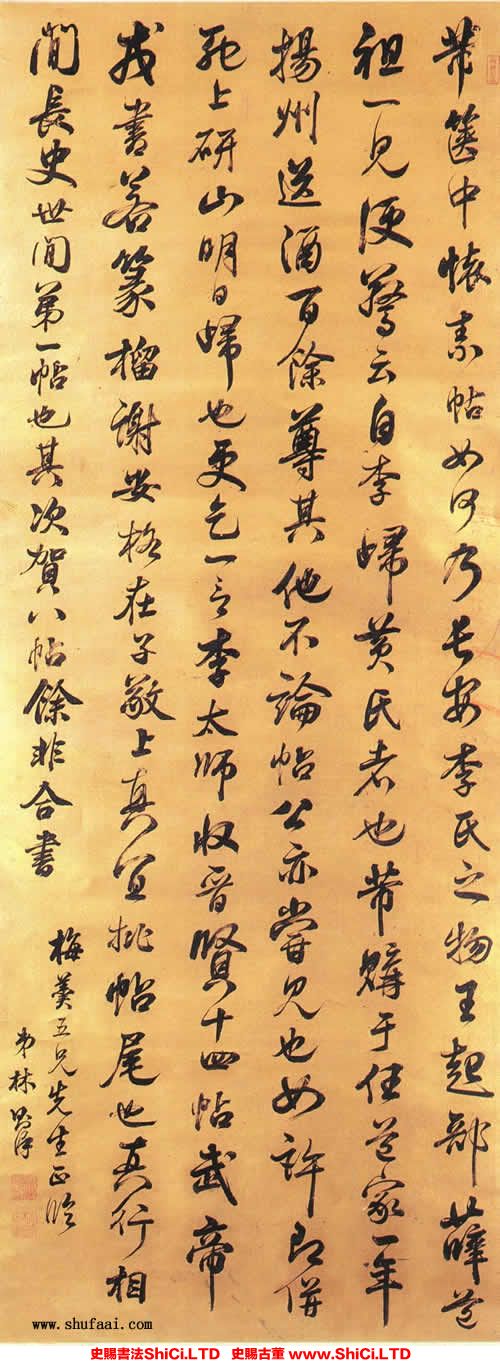 芾篋中懷素帖如何乃長安李氏之物王起部薛道
祖一見便驚云自李歸黃氏者也芾購于任道家一年
揚州送酒百餘尊其他不論帖公亦嘗見也如許即併
馳上研山明日歸也更乞一言李太師收晉賢十四帖武帝
戎書若篆榴謝安格在子敬上真宜批帖尾也真行相
間長史世間第一帖也其次賀八帖餘非合書
梅羹五兄先生正臨
弟林則徐
www.shufaai.com
史賜書法ShiCi.LTD 史賜古董 www.ShiCi.LTD